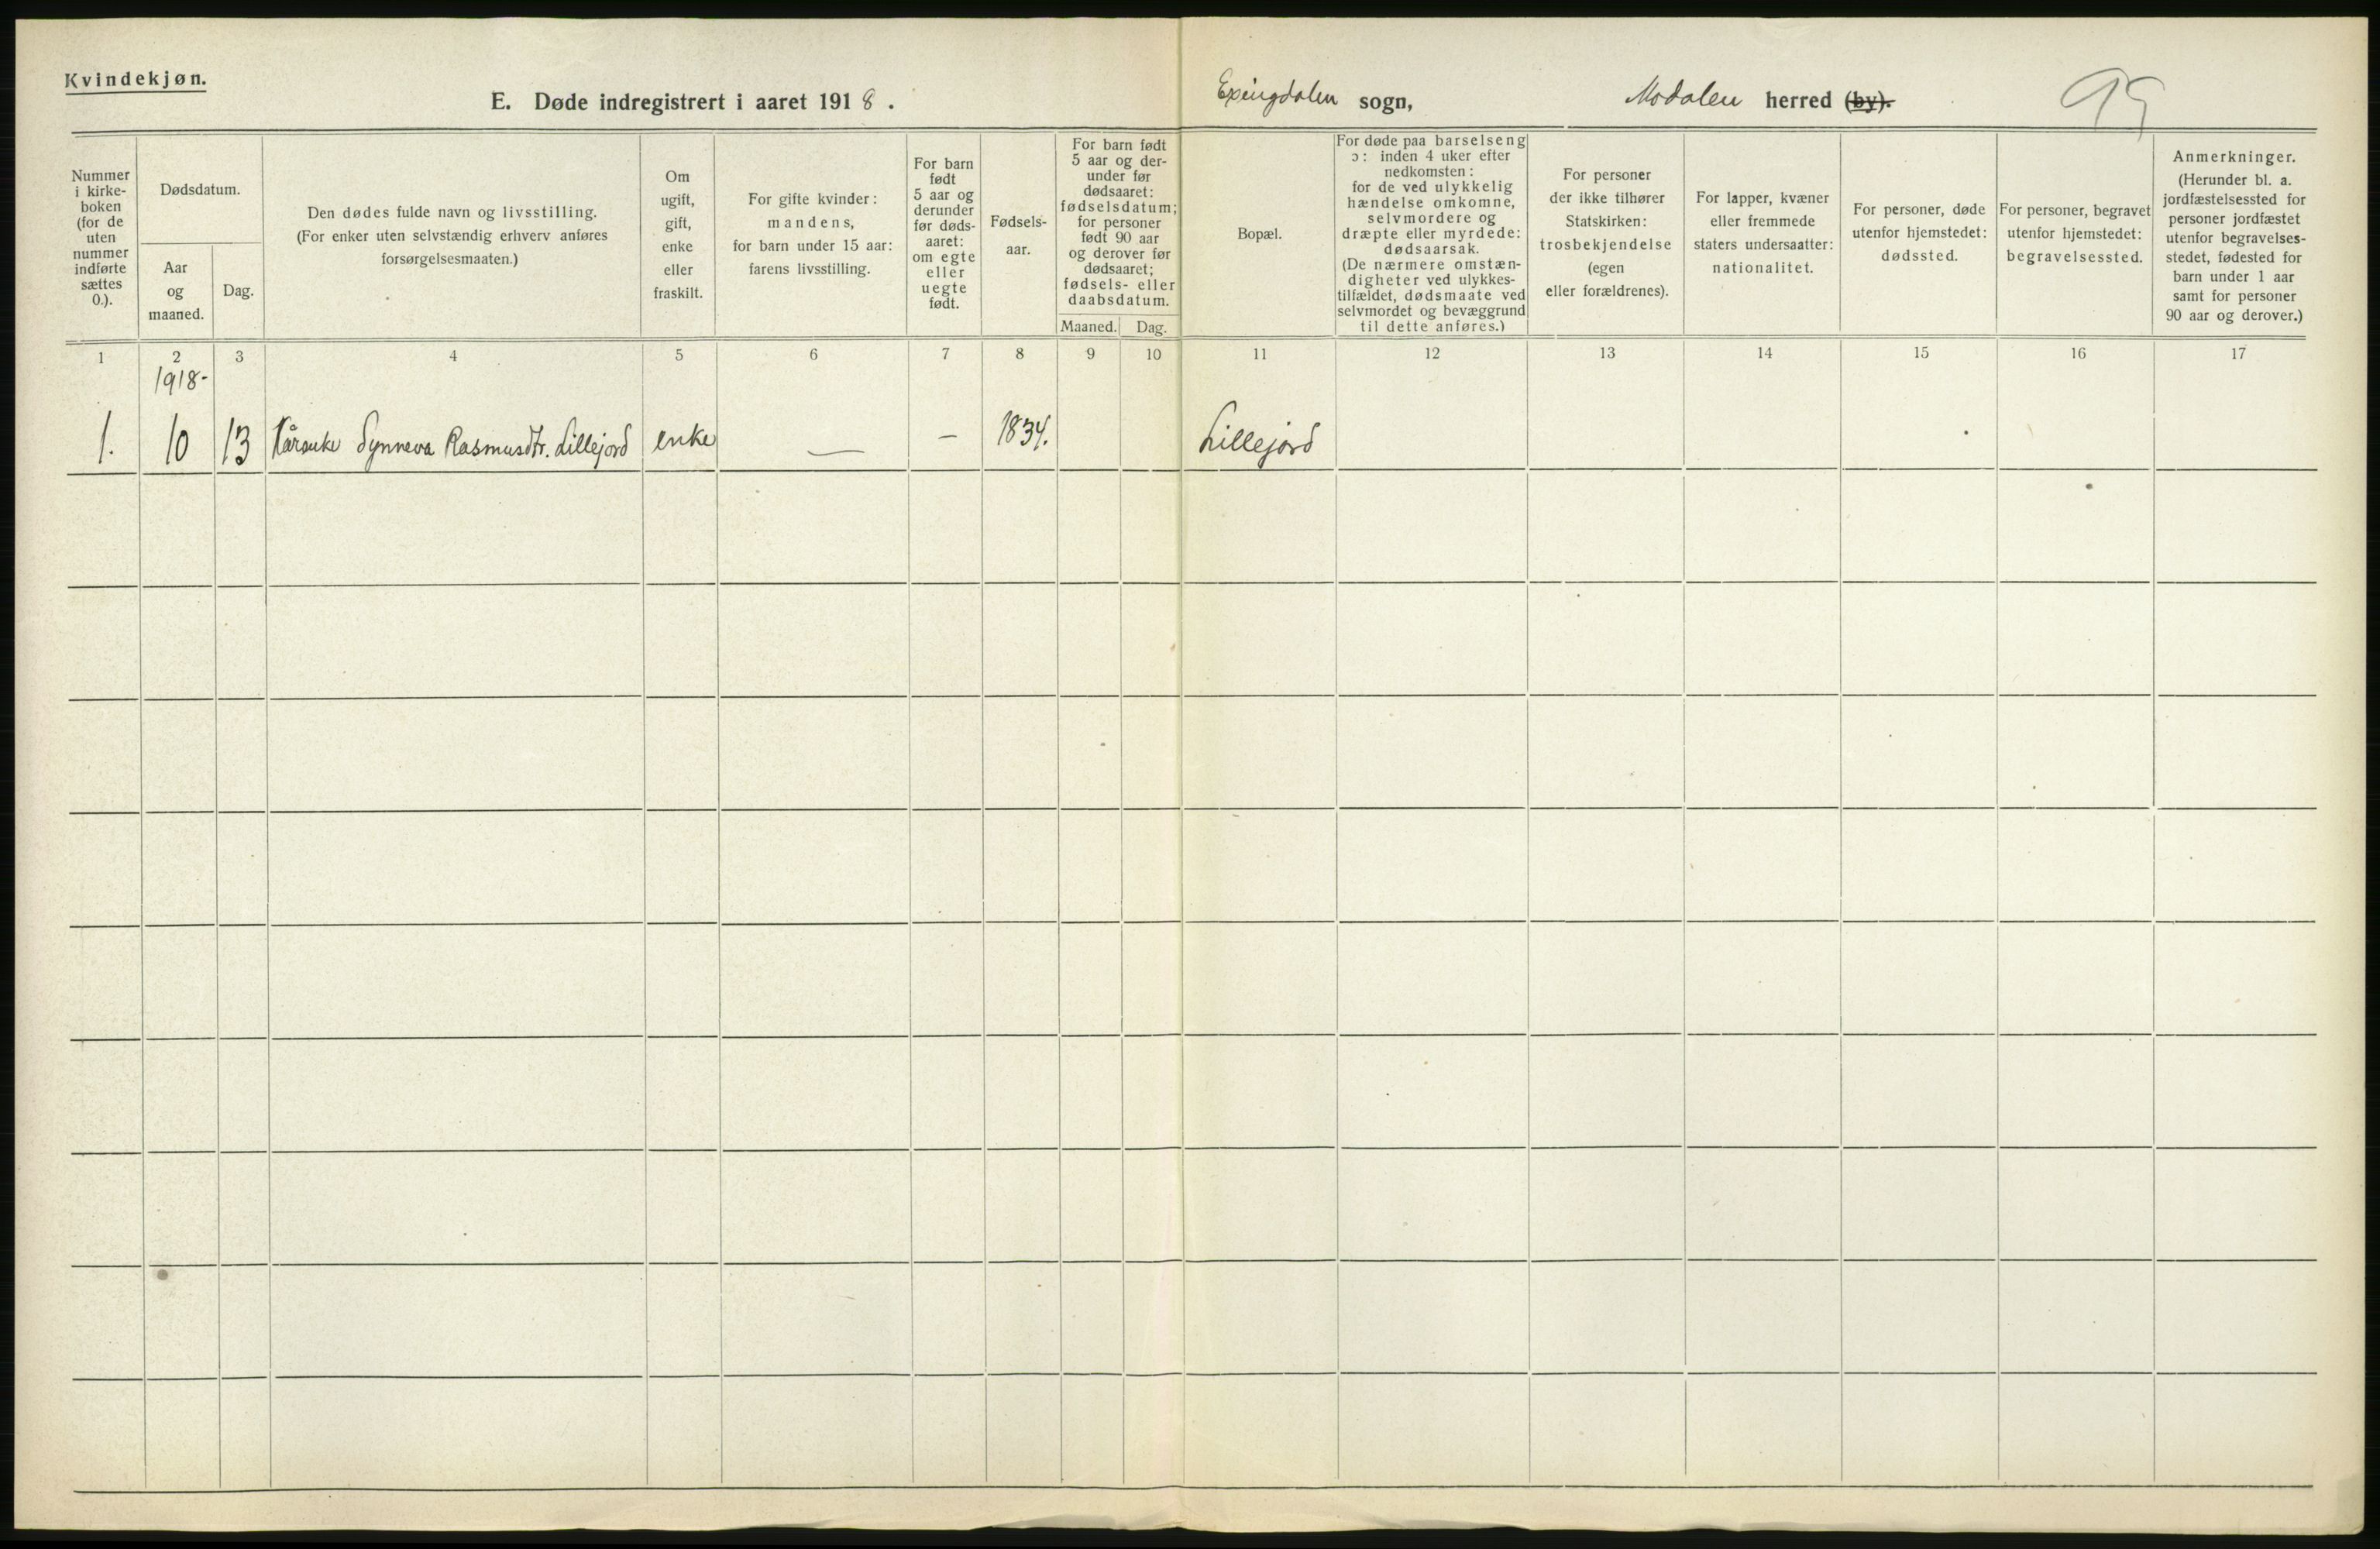 Kvindekjøn.
E. Døde indregistrert i aaret 1918. Exingdalen sogn, Modalen herred (by). 99
Nummer
i kirke-
boken
(for de
uten
nummer
indførte
sættes
0.).
Dødsdatum.
Aar
og
maaned.
Dag.
Den dødes fulde navn og livsstilling.
(For enker uten selvstændig erhverv anføres
forsørgelsesmaaten.)
Om
ugift,
gift,
enke
eller
fraskilt.
For gifte kvinder:
mandens,
for barn under 15 aar:
farens livsstilling.
For barn
født
5 aar og
derunder
før døds-
aaret:
om egte
eller
uegte
født.
Fødsels-
aar.
For barn født
5 aar og der-
under før
dødsaaret:
fødselsdatum;
for personer
født 90 aar
og derover før
dødsaaret;
fødsels- eller
daabsdatum.
Maaned. Dag.
Bopæl.
For døde paa barselseng
ɔ: inden 4 uker efter
nedkomsten:
for de ved ulykkelig
hændelse omkomne,
selvmordere og
dræpte eller myrdede:
dødsaarsak.
(De nærmere omstæn-
digheter ved ulykkes-
tilfældet, dødsmaate ved
selvmordet og bevæggrund
til dette anføres.)
For personer
der ikke tilhører
Statskirken:
trosbekjendelse
(egen
eller forældrenes).
For lapper, kvæner
eller fremmede
staters undersaatter:
nationalitet.
For personer, døde
utenfor hjemstedet:
dødssted.
For personer, begravet
utenfor hjemstedet:
begravelsessted.
Anmerkninger.
(Herunder bl. a.
jordfæstelsessted for
personer jordfæstet
utenfor begravelses-
stedet, fødested for
barn under 1 aar
samt for personer
90 aar og derover.)
1 2 3 4 5 6 7 8 9 10 11 12 13 14 15 16 17
1918-
1. 10 13 Kårenke Synneva Rasmusdtr. Lillejord enke — — 1834. Lillejord